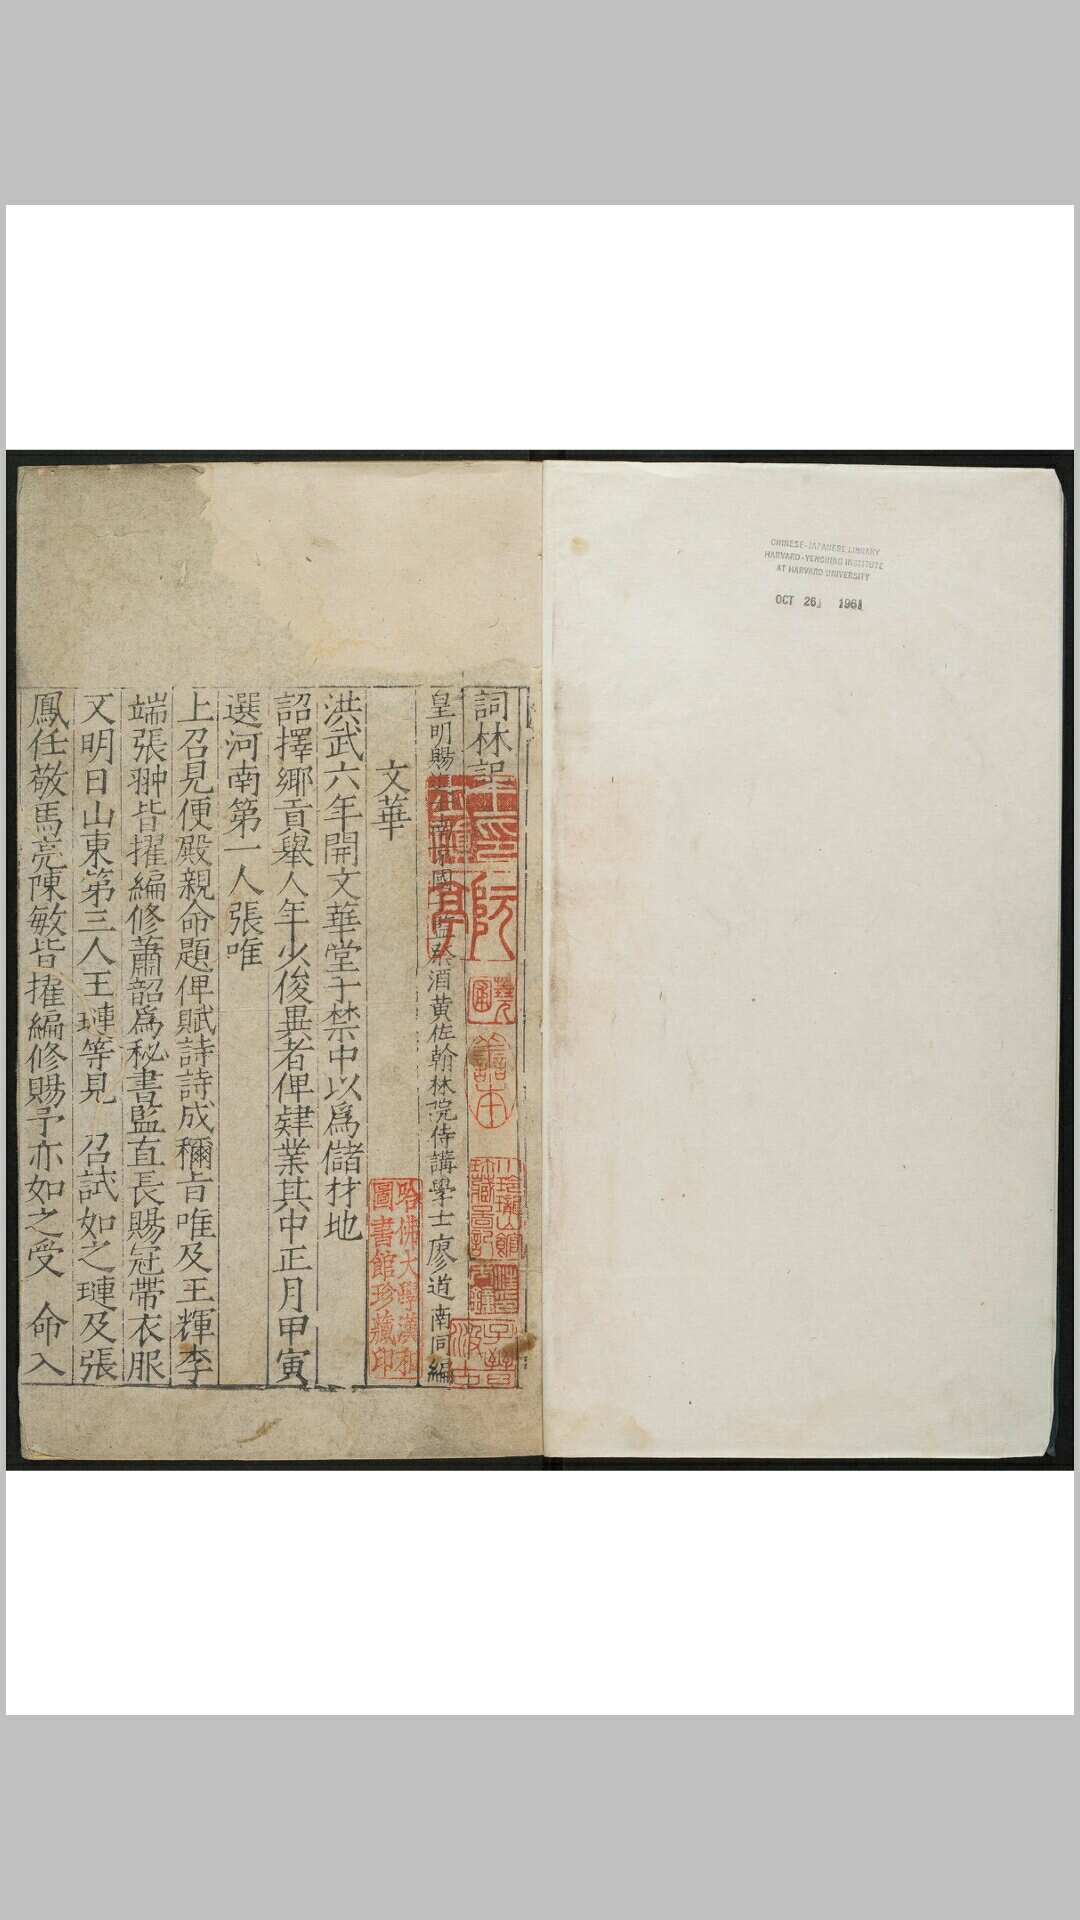 CHINESE-JAPANESE LIBRARY
HARVARD-YENCHING INSTITUTE
AT HARVARD UNIVERSITY
OCT 26 1961
詞林記
皇明賜南京國監祭酒黄佐翰林院侍講學士廖道南同編
文華
洪武六年開文華堂于禁中以爲儲材地
詔擇鄉貢舉人年少俊異者俾肄業其中正月甲寅
選河南第一人張唯
上召見便殿親命題俾賦詩詩成稱旨唯及王輝李
端張翀皆擢編修蕭韶爲秘書監直長賜冠帶衣服
又明日山東第三人王璉等見 召試如之璉及張
鳳任敬馬亮陳敏皆擢編修賜予亦如之受 命入
善本
小玲瓏山館
珍藏圖記
哈佛大學漢和
圖書館珍藏印